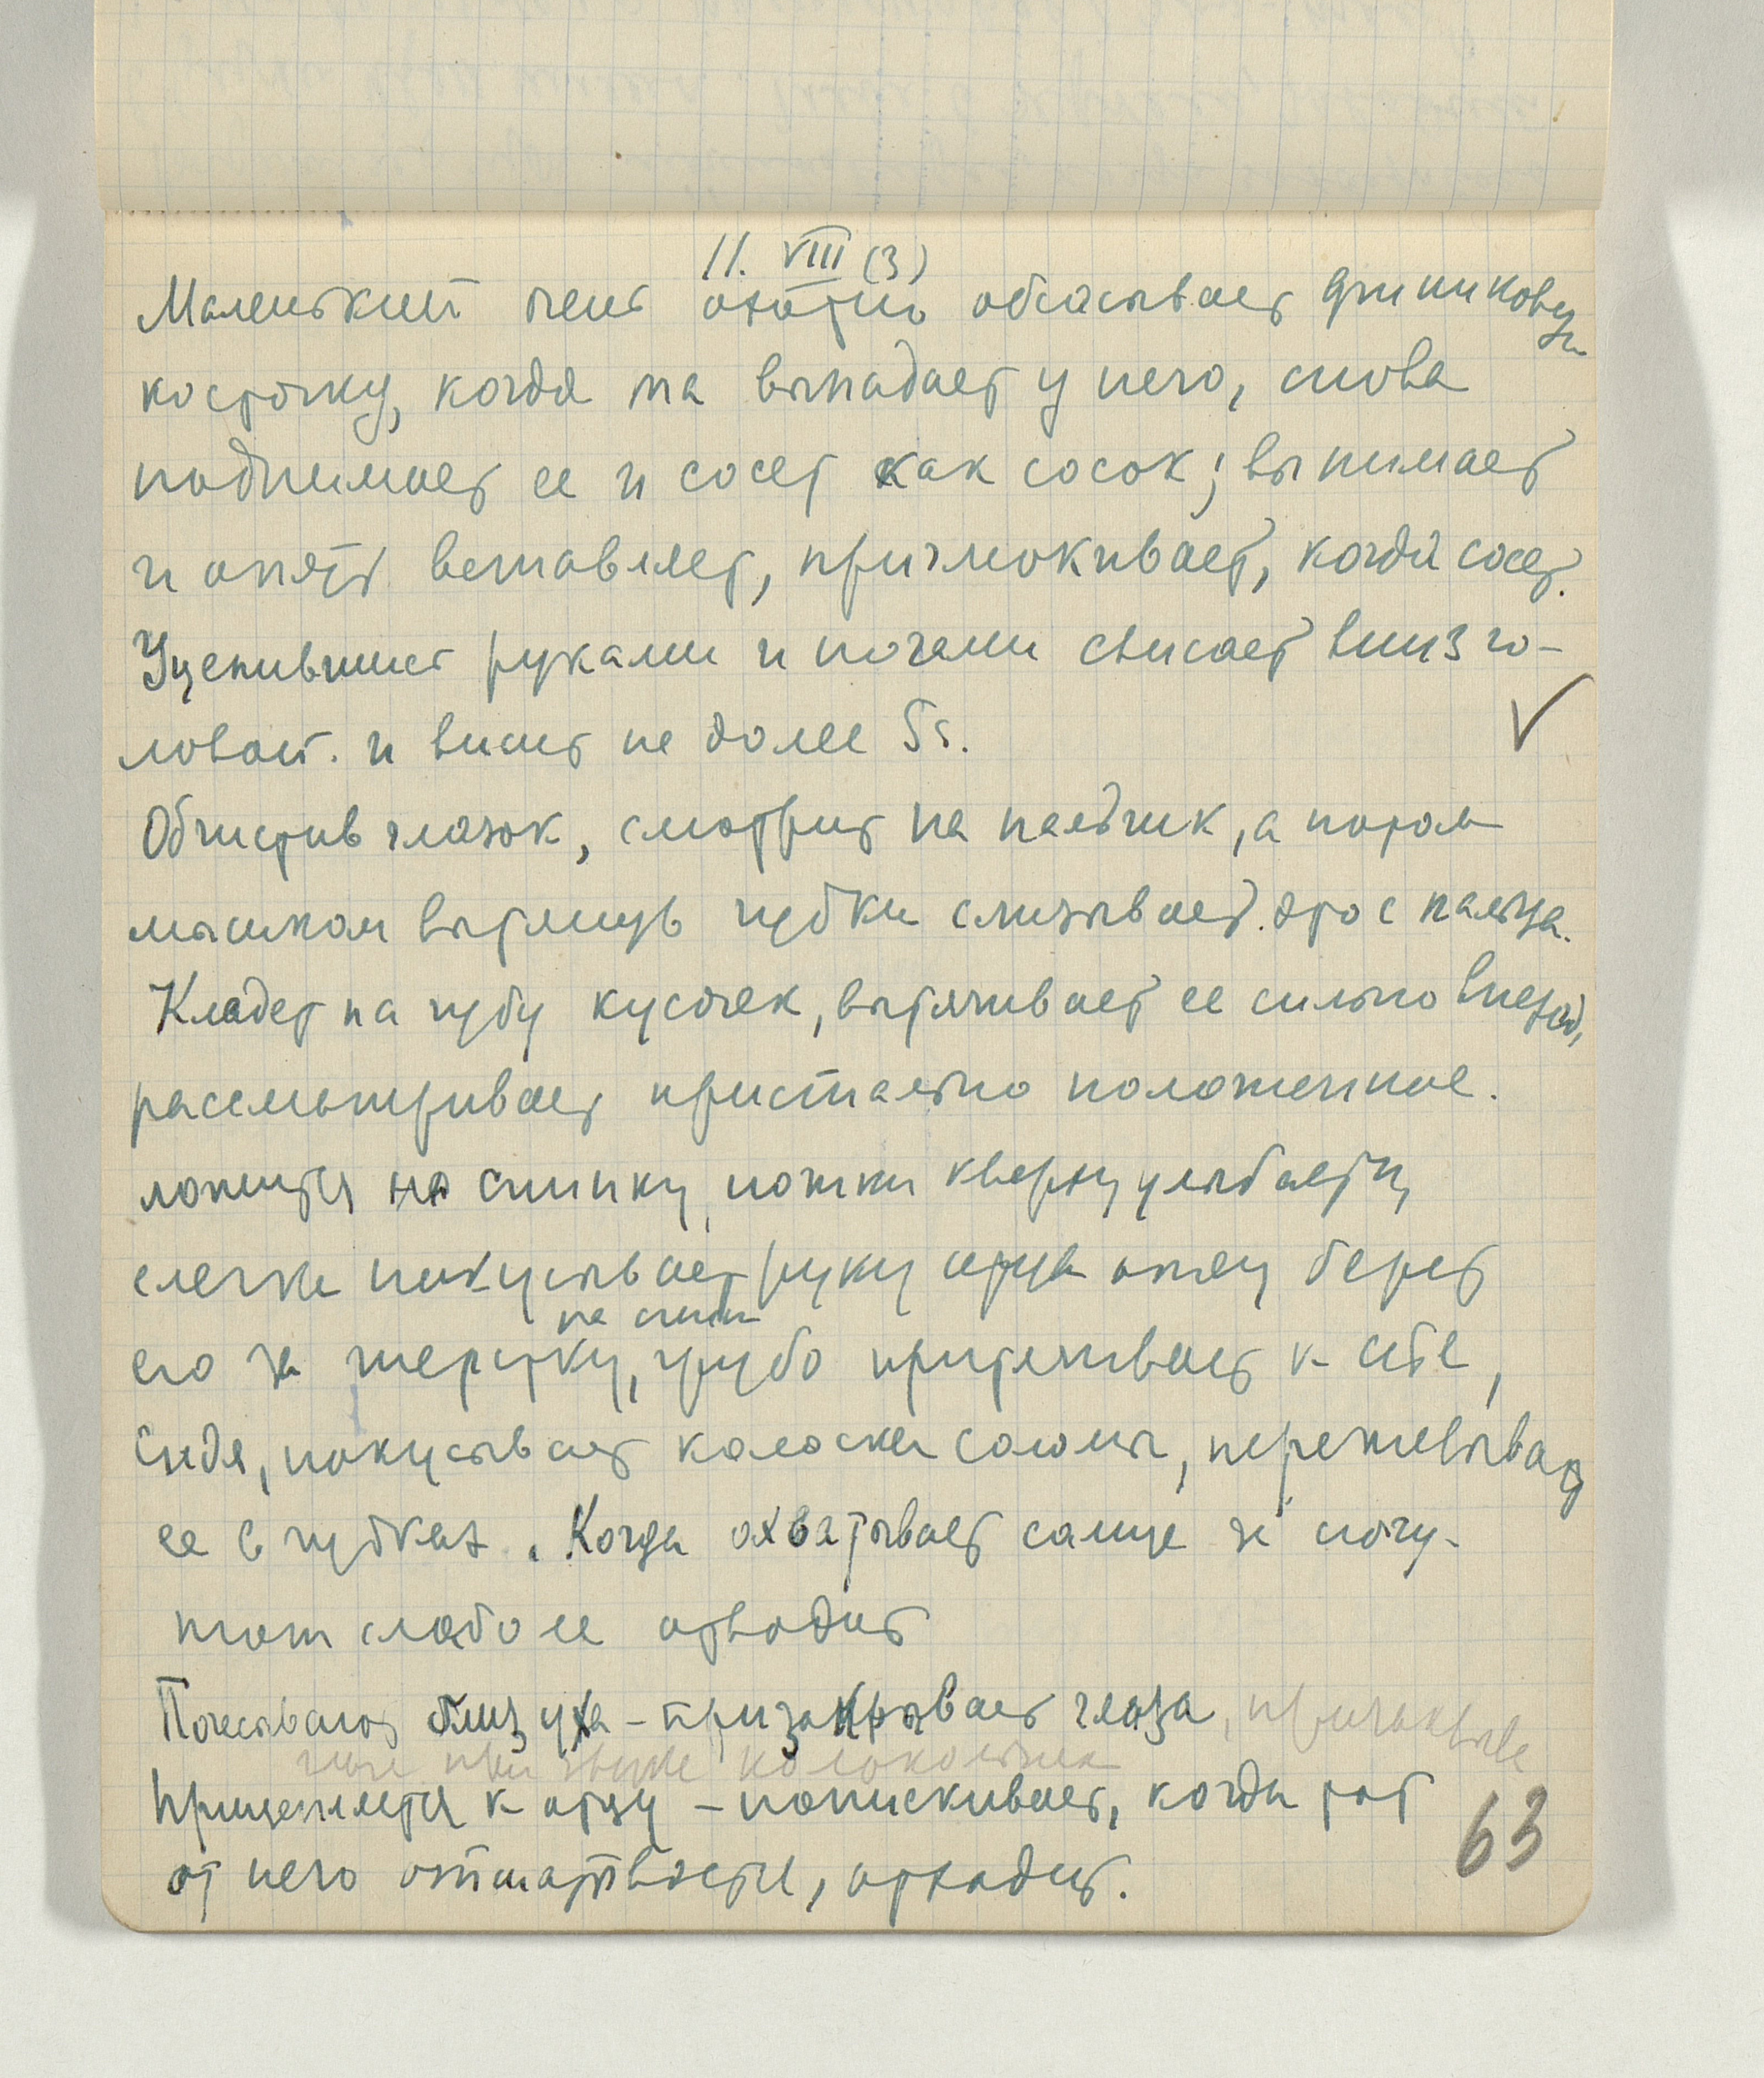 11. VIII (3)
Маленький очень охотно обсасывает финиковую
косточку, когда та выпадает у него, снова
поднимает ее и сосет как сосок; вынимает
и опять вставляет, причмокивает, когда сосет.
Уцепившись руками и ногами свисает вниз го-
ловой. и висит не долее 5s.
Обчистив глазок, смотрит на пальчик, а потом
мысиком вытянув губки слизывает. это с пальца.
Кладет на губу кусочек, вытягивает ее сильно вперед,
рассматривает пристально положенное.
ложится на спинку ножки кверху улыбается,
слегка покусывает руку отца отец берет
на спине
его за шерстку, грубо притягивает к себе,
Сидя, покусывает колоски соломы, пережевывает
ее в губках. Когда охватывает самца за ногу-
тот слабо ее отводит
Почесывают близ уха - призакрывает глаза, призакрывает
при звуке колокольчика
Прицепляется к отцу - попискивает, когда тот
от него отшатывается, отходит.
63